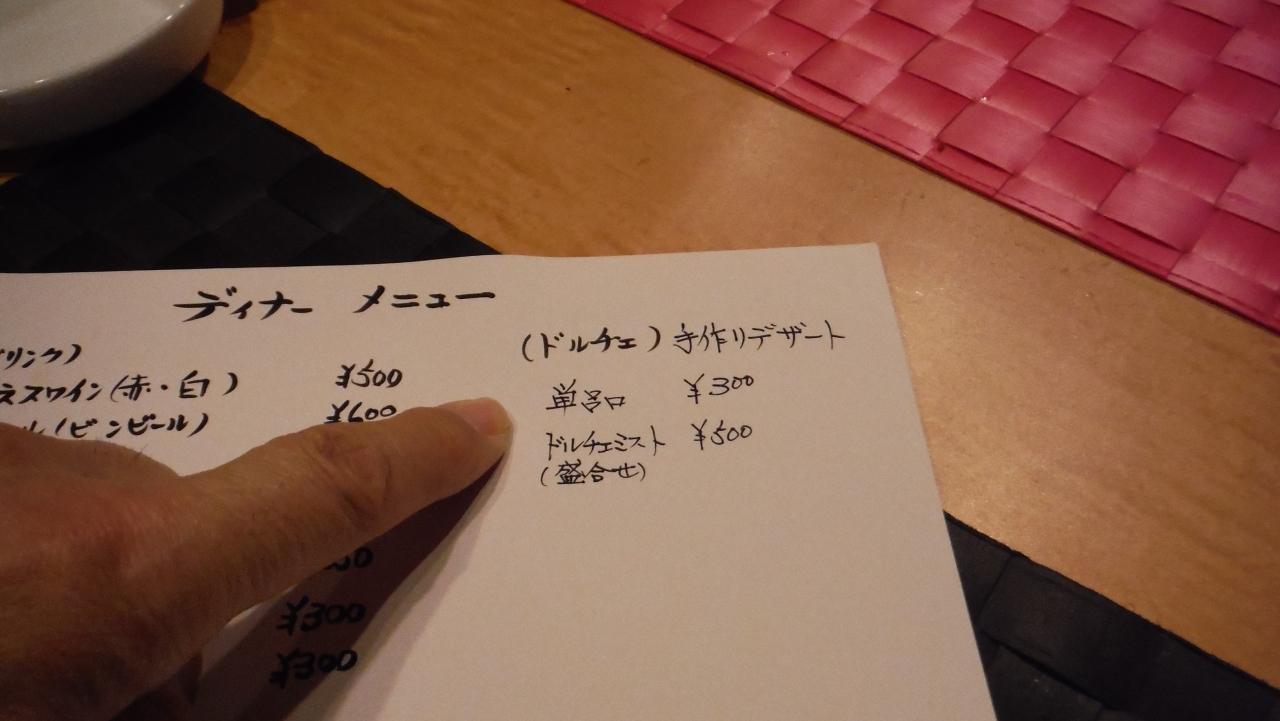 ディナー メニュー
リンク)
ネスワイン(赤・白) ¥500
ル(ビンビール) ¥600
¥300
¥300
(ドルチェ)手作りデザート
単呂口 ¥300
ドルチェミスト ¥500
(盛合せ)